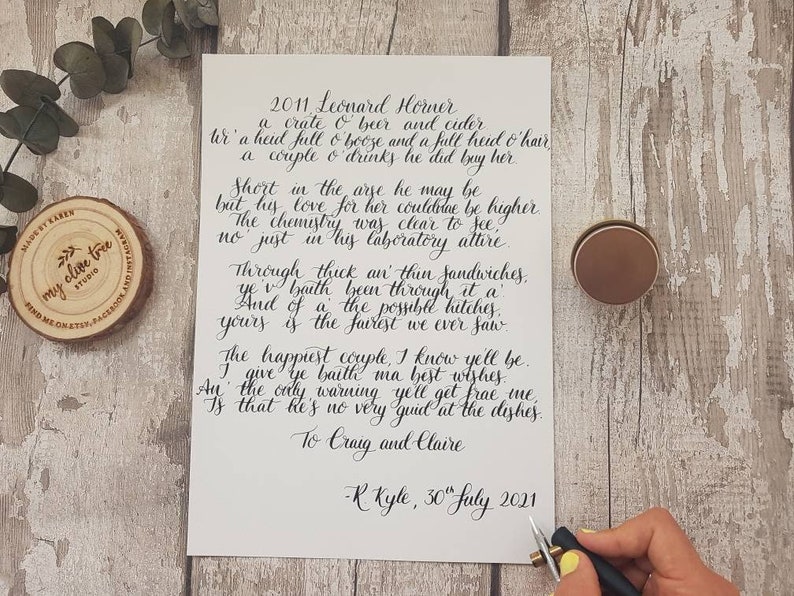 2011 Leonard Horner
a crate o' beer and cider
Wi' a heid full o'booze and a full heid o'hair,
a couple o'drinks he did buy her.
Short in the arse he may be
but his love for her couldnae be higher.
The chemistry was clear to see,
no' just in his laboratory attire.
Through thick an' thin sandwiches,
ye'v baith been through it a'
And of a' the possible hitches,
yours is the fairest we ever saw.
The happiest couple, I know yell be.
I give ye baith ma best wishes.
An' the only warning yell get frae me,
Is that he's no very guid at the dishes.
To Craig and Claire
-R. Kyle, 30th July 2021
MADE BY KAREN
my olive tree
STUDIO
FIND ME ON ETSY, FACEBOOK AND INSTAGRAM